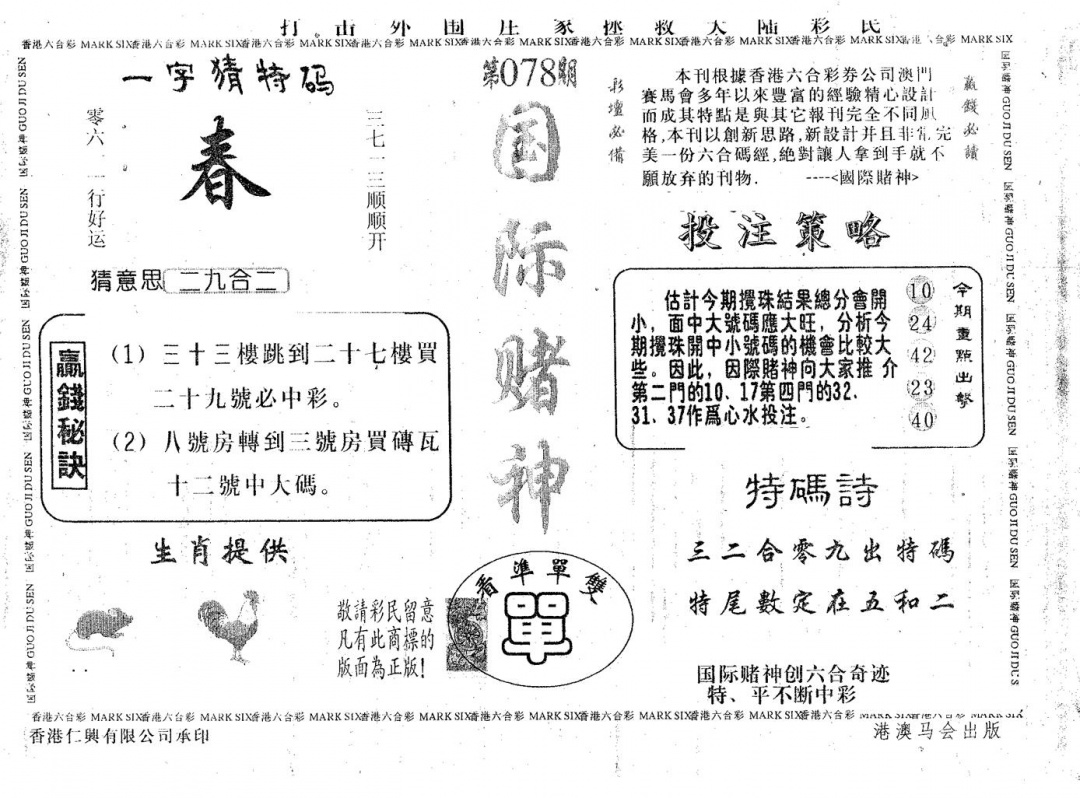 打击外围庄家拯救大陆彩民
香港六合彩 MARK SIX香港六合彩 MARK SIX香港六合彩 MARK SIX香港六合彩 MARK SIX香港六合彩 MARK SIX香港六合彩 MARK SIX香港六合彩 MARK SIX香港六合彩 MARK SIX香港六合彩 MARK SIX
一字猜特码
零六一一行好运
春
三七一三顺顺开
猜意思 二九合二
贏錢秘訣
(1) 三十三樓跳到二十七樓買
二十九號必中彩。
(2) 八號房轉到三號房買磚瓦
十二號中大碼。
生肖提供
敬請彩民留意
凡有此商標的
版面為正版!
第078期
国际赌神
看準單雙
單
彩壇必備
本刊根據香港六合彩券公司澳門
賽馬會多年以來豐富的經驗精心設計
而成其特點是與其它報刊完全不同風
格,本刊以創新思路,新設計并且非常完
美一份六合碼經,絶對讓人拿到手就不
願放弃的刊物. ----<國際賭神>
贏錢必讀
投注策略
估計今期攪珠結果總分會開
小，面中大號碼應大旺，分析今
期攪珠開中小號碼的機會比較大
些。因此，因際賭神向大家推介
第二門的10、17第四門的32、
31、37作爲心水投注。
10
24
42
23
40
今期重點出擊
特碼詩
三二合零九出特碼
特尾數定在五和二
国际赌神创六合奇迹
特、平不断中彩
香港六合彩 MARK SIX香港六合彩 MARK SIX香港六合彩 MARK SIX香港六合彩 MARK SIX香港六合彩 MARK SIX香港六合彩 MARK SIX香港六合彩 MARK SIX香港六合彩 MARK SIX香港六合彩 MARK SIX
香港仁興有限公司承印
港澳马会出版